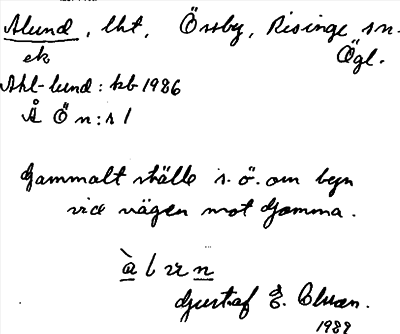 Alund, lht, Örsby, Risinge sn.
ek Ögl.
Ahl-lund: kb 1986
Å Ö n: s 1
Gammalt ställe s. ö. om byn
vid vägen mot Gomma.
Gustaf E. Olsson.